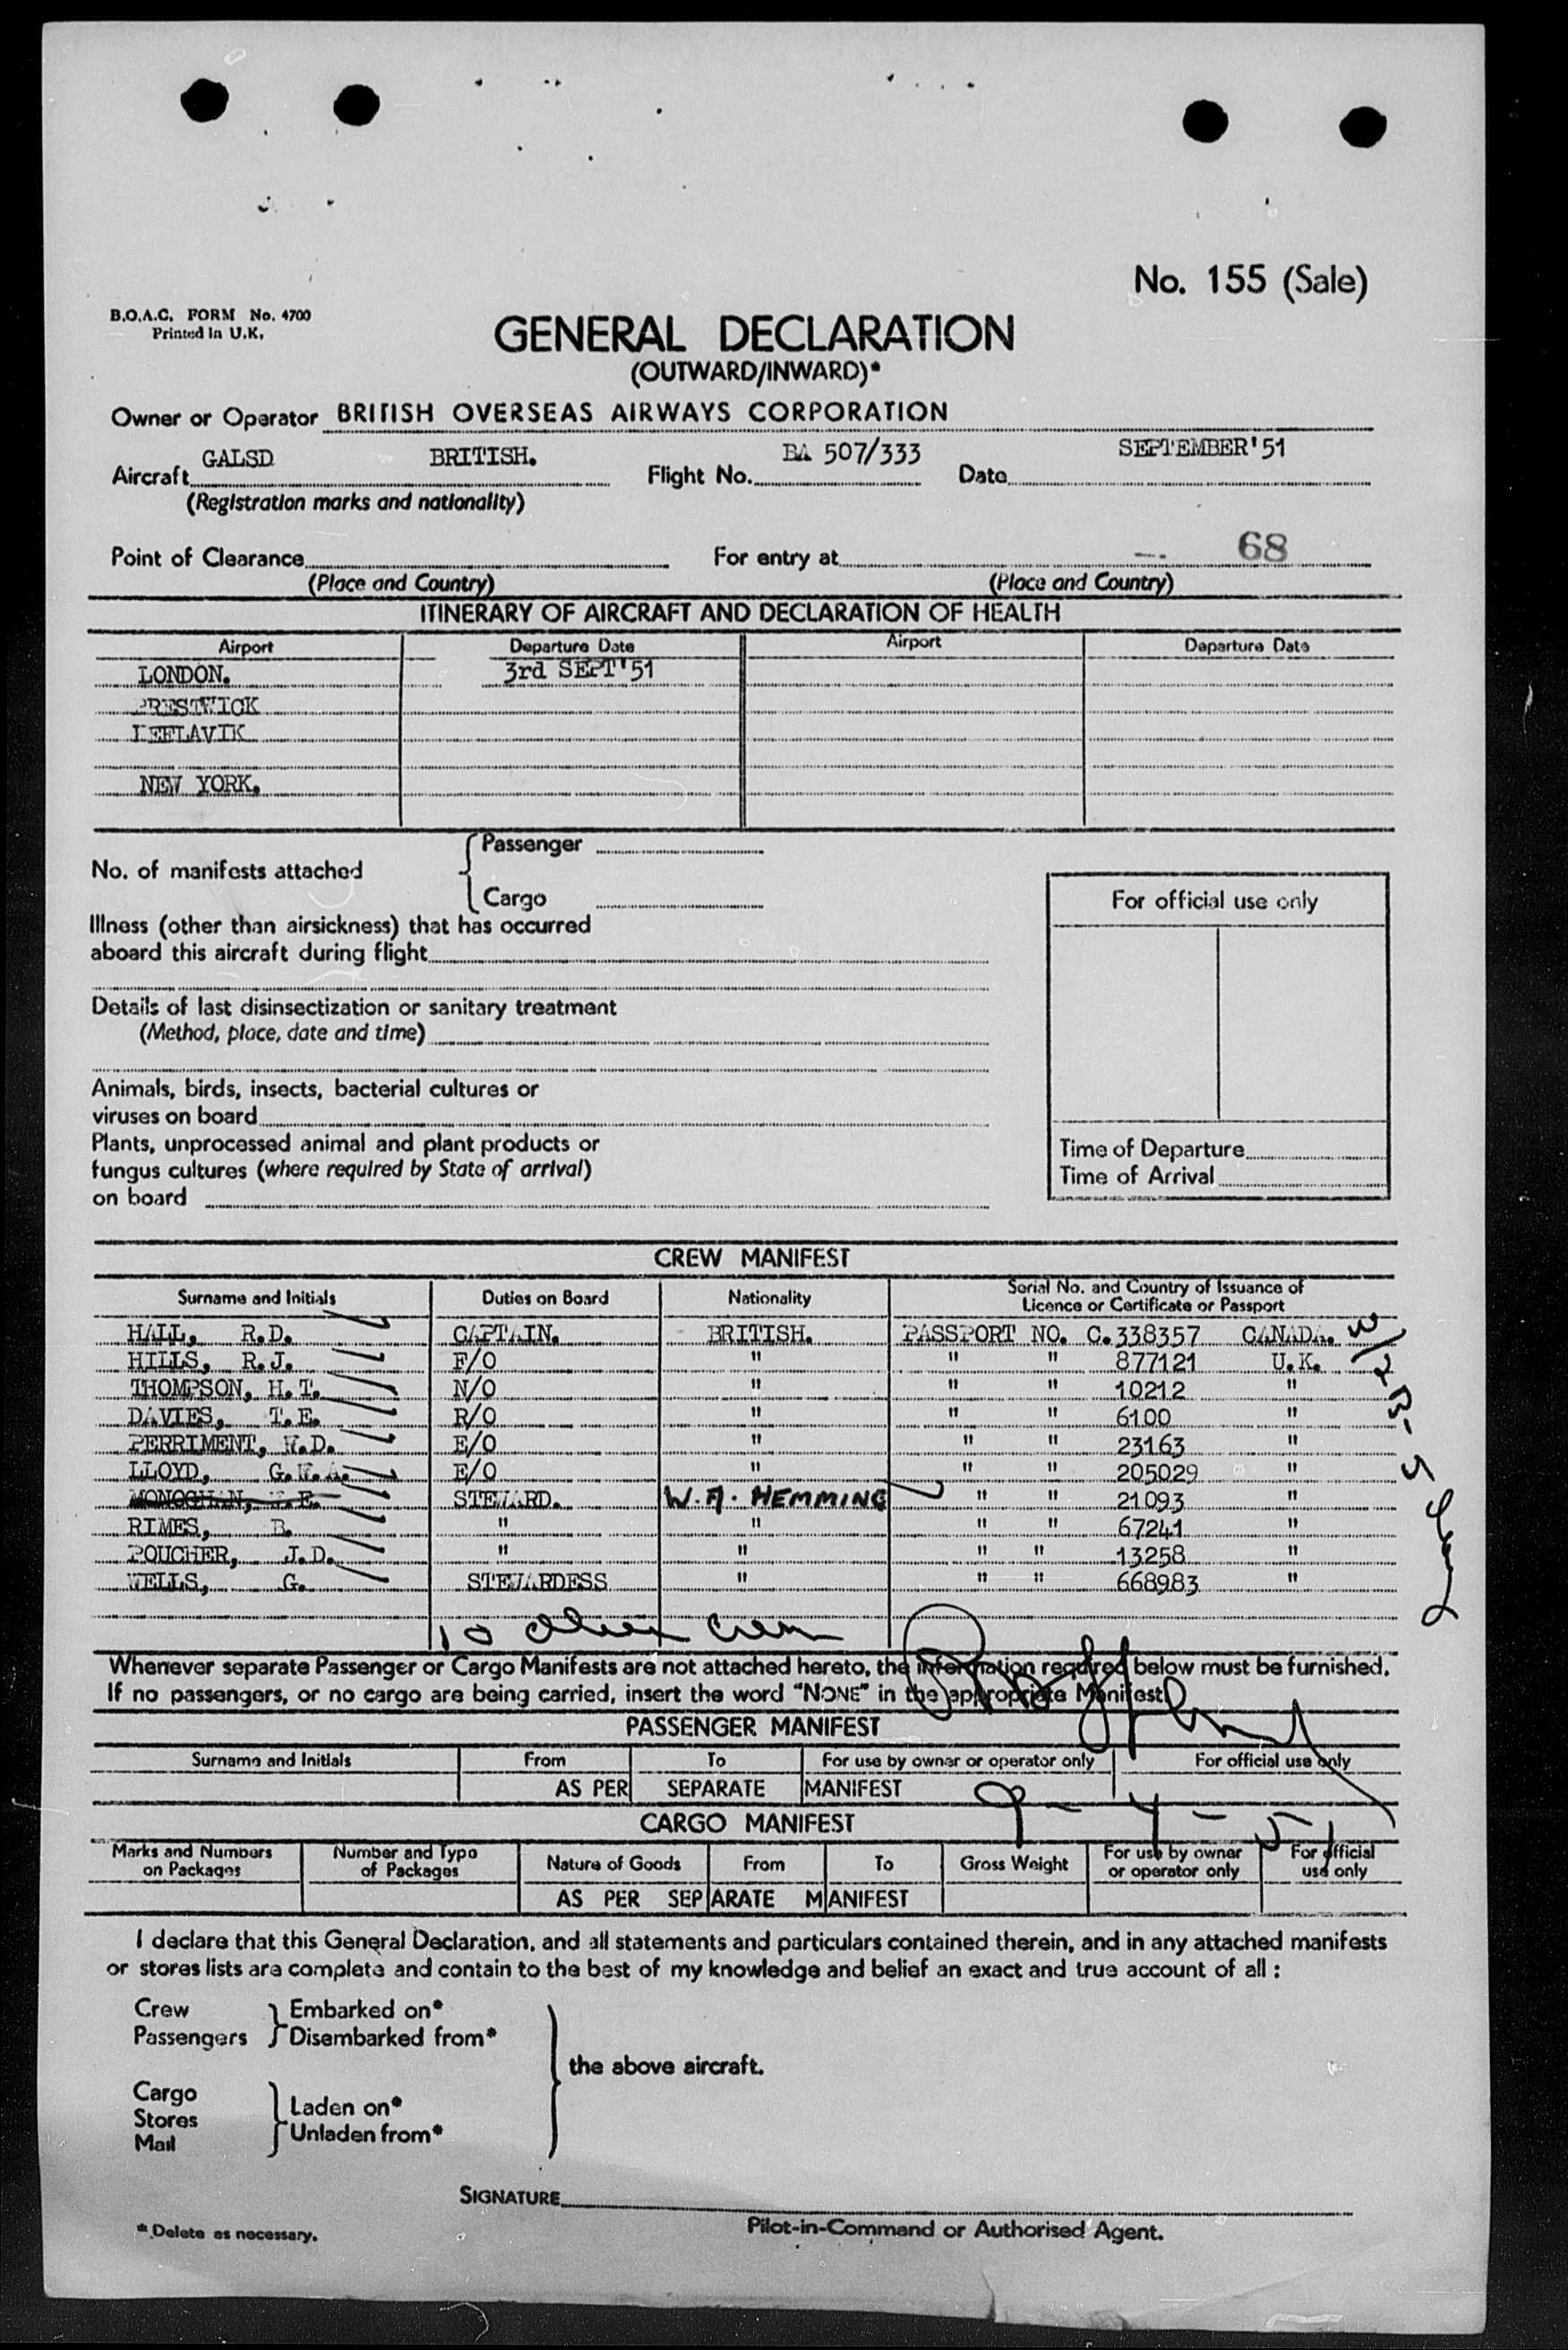 No. 155 (Sale)
B.O.A.C. FORM No. 4700
Printed in U.K.
GENERAL DECLARATION
(OUTWARD/INWARD)*
Owner or Operator BRITISH OVERSEAS AIRWAYS CORPORATION
Aircraft GALSD BRITISH. Flight No. BA 507/333 Date SEPTEMBER'51
(Registration marks and nationality)
Point of Clearance For entry at -. 68
(Place and Country) (Place and Country)
ITINERARY OF AIRCRAFT AND DECLARATION OF HEALTH
Airport Departure Date Airport Departure Date
LONDON. 3rd SEPT'51
PRESTWICK
KEFLAVIK
NEW YORK.
No. of manifests attached
Passenger
Cargo
For official use only
Illness (other than airsickness) that has occurred
aboard this aircraft during flight
Details of last disinsectization or sanitary treatment
(Method, place, date and time)
Animals, birds, insects, bacterial cultures or
viruses on board
Plants, unprocessed animal and plant products or
fungus cultures (where required by State of arrival)
on board
Time of Departure
Time of Arrival
CREW MANIFEST
Surname and Initials Duties on Board Nationality Serial No. and Country of Issuance of
Licence or Certificate or Passport
HALL, R.D. CAPTAIN. BRITISH. PASSPORT NO. C.338357 CANADA.
HILLS, R.J. F/O " " " 877121 U.K.
THOMPSON, H.T. N/O " " " 10212 "
DAVIES, T.E. R/O " " " 6100 "
PERRIMENT, W.D. E/O " " " 23163 "
LLOYD, G.W.A. E/O " " " 205029 "
MONOGHAN, STEWARD. W.A. HEMMING " " 21093 "
RIMES, B. " " " " 67241 "
POUCHER, J.D. " " " " 13258 "
WELLS, G. STEWARDESS " " " 668983 "
10 crew
Whenever separate Passenger or Cargo Manifests are not attached hereto, the information required below must be furnished.
If no passengers, or no cargo are being carried, insert the word "NONE" in the appropriate Manifest
PASSENGER MANIFEST
Surname and Initials From To For use by owner or operator only For official use only
AS PER SEPARATE MANIFEST
9-4-51
CARGO MANIFEST
Marks and Numbers on Packages Number and Type of Packages Nature of Goods From To Gross Weight For use by owner or operator only For official use only
AS PER SEPARATE MANIFEST
I declare that this General Declaration, and all statements and particulars contained therein, and in any attached manifests
or stores lists are complete and contain to the best of my knowledge and belief an exact and true account of all :
Crew
Passengers
Embarked on*
Disembarked from*
the above aircraft.
Cargo
Stores
Mail
Laden on*
Unladen from*
SIGNATURE
* Delete as necessary.
Pilot-in-Command or Authorised Agent.